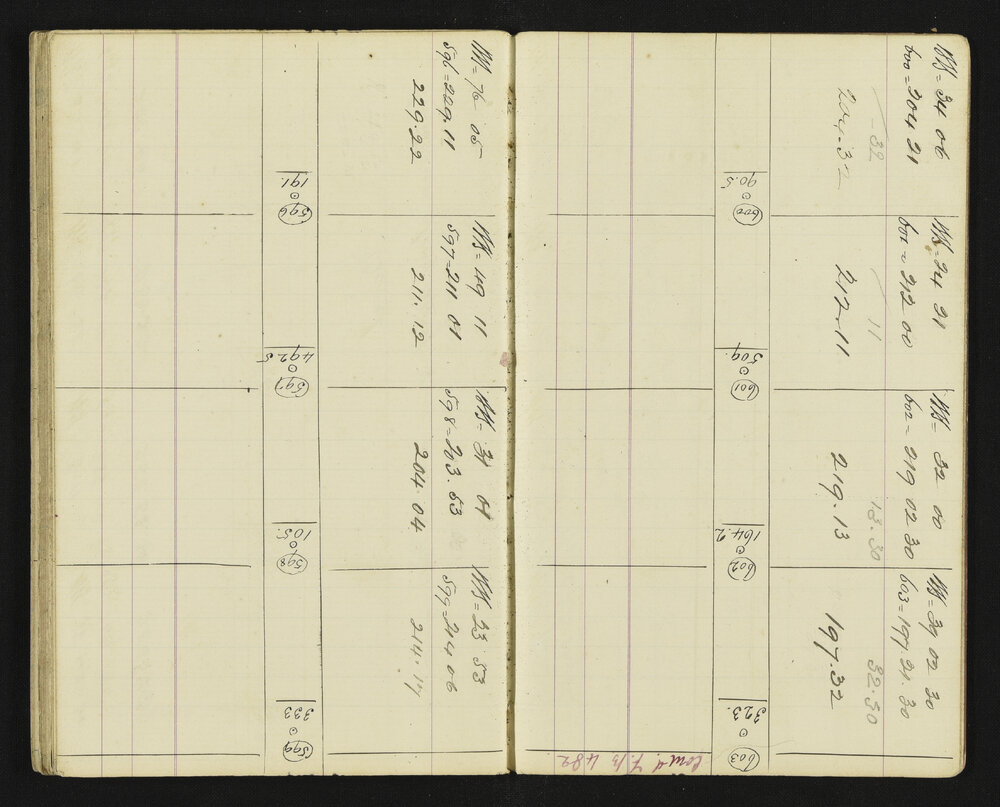 = 76 05
596 = 229.11
229.22
= 49 11
597 = 211 01
211.12
= 31 01
598 = 203.53
204.04
= 23 53
599 = 214 06
214.17
191.
596
492.5
597
105.
598
333.
599
= 34 06
600 = 204 21
-32
204.32
= 24 21
601 = 212 00
11
212.11
= 32 00
602 = 219 02 30
13.30
219.13
= 39 02 30
603 = 197.21.30
32.30
197.32
90.5
600
509.
601
164.2
602
323.
603
482